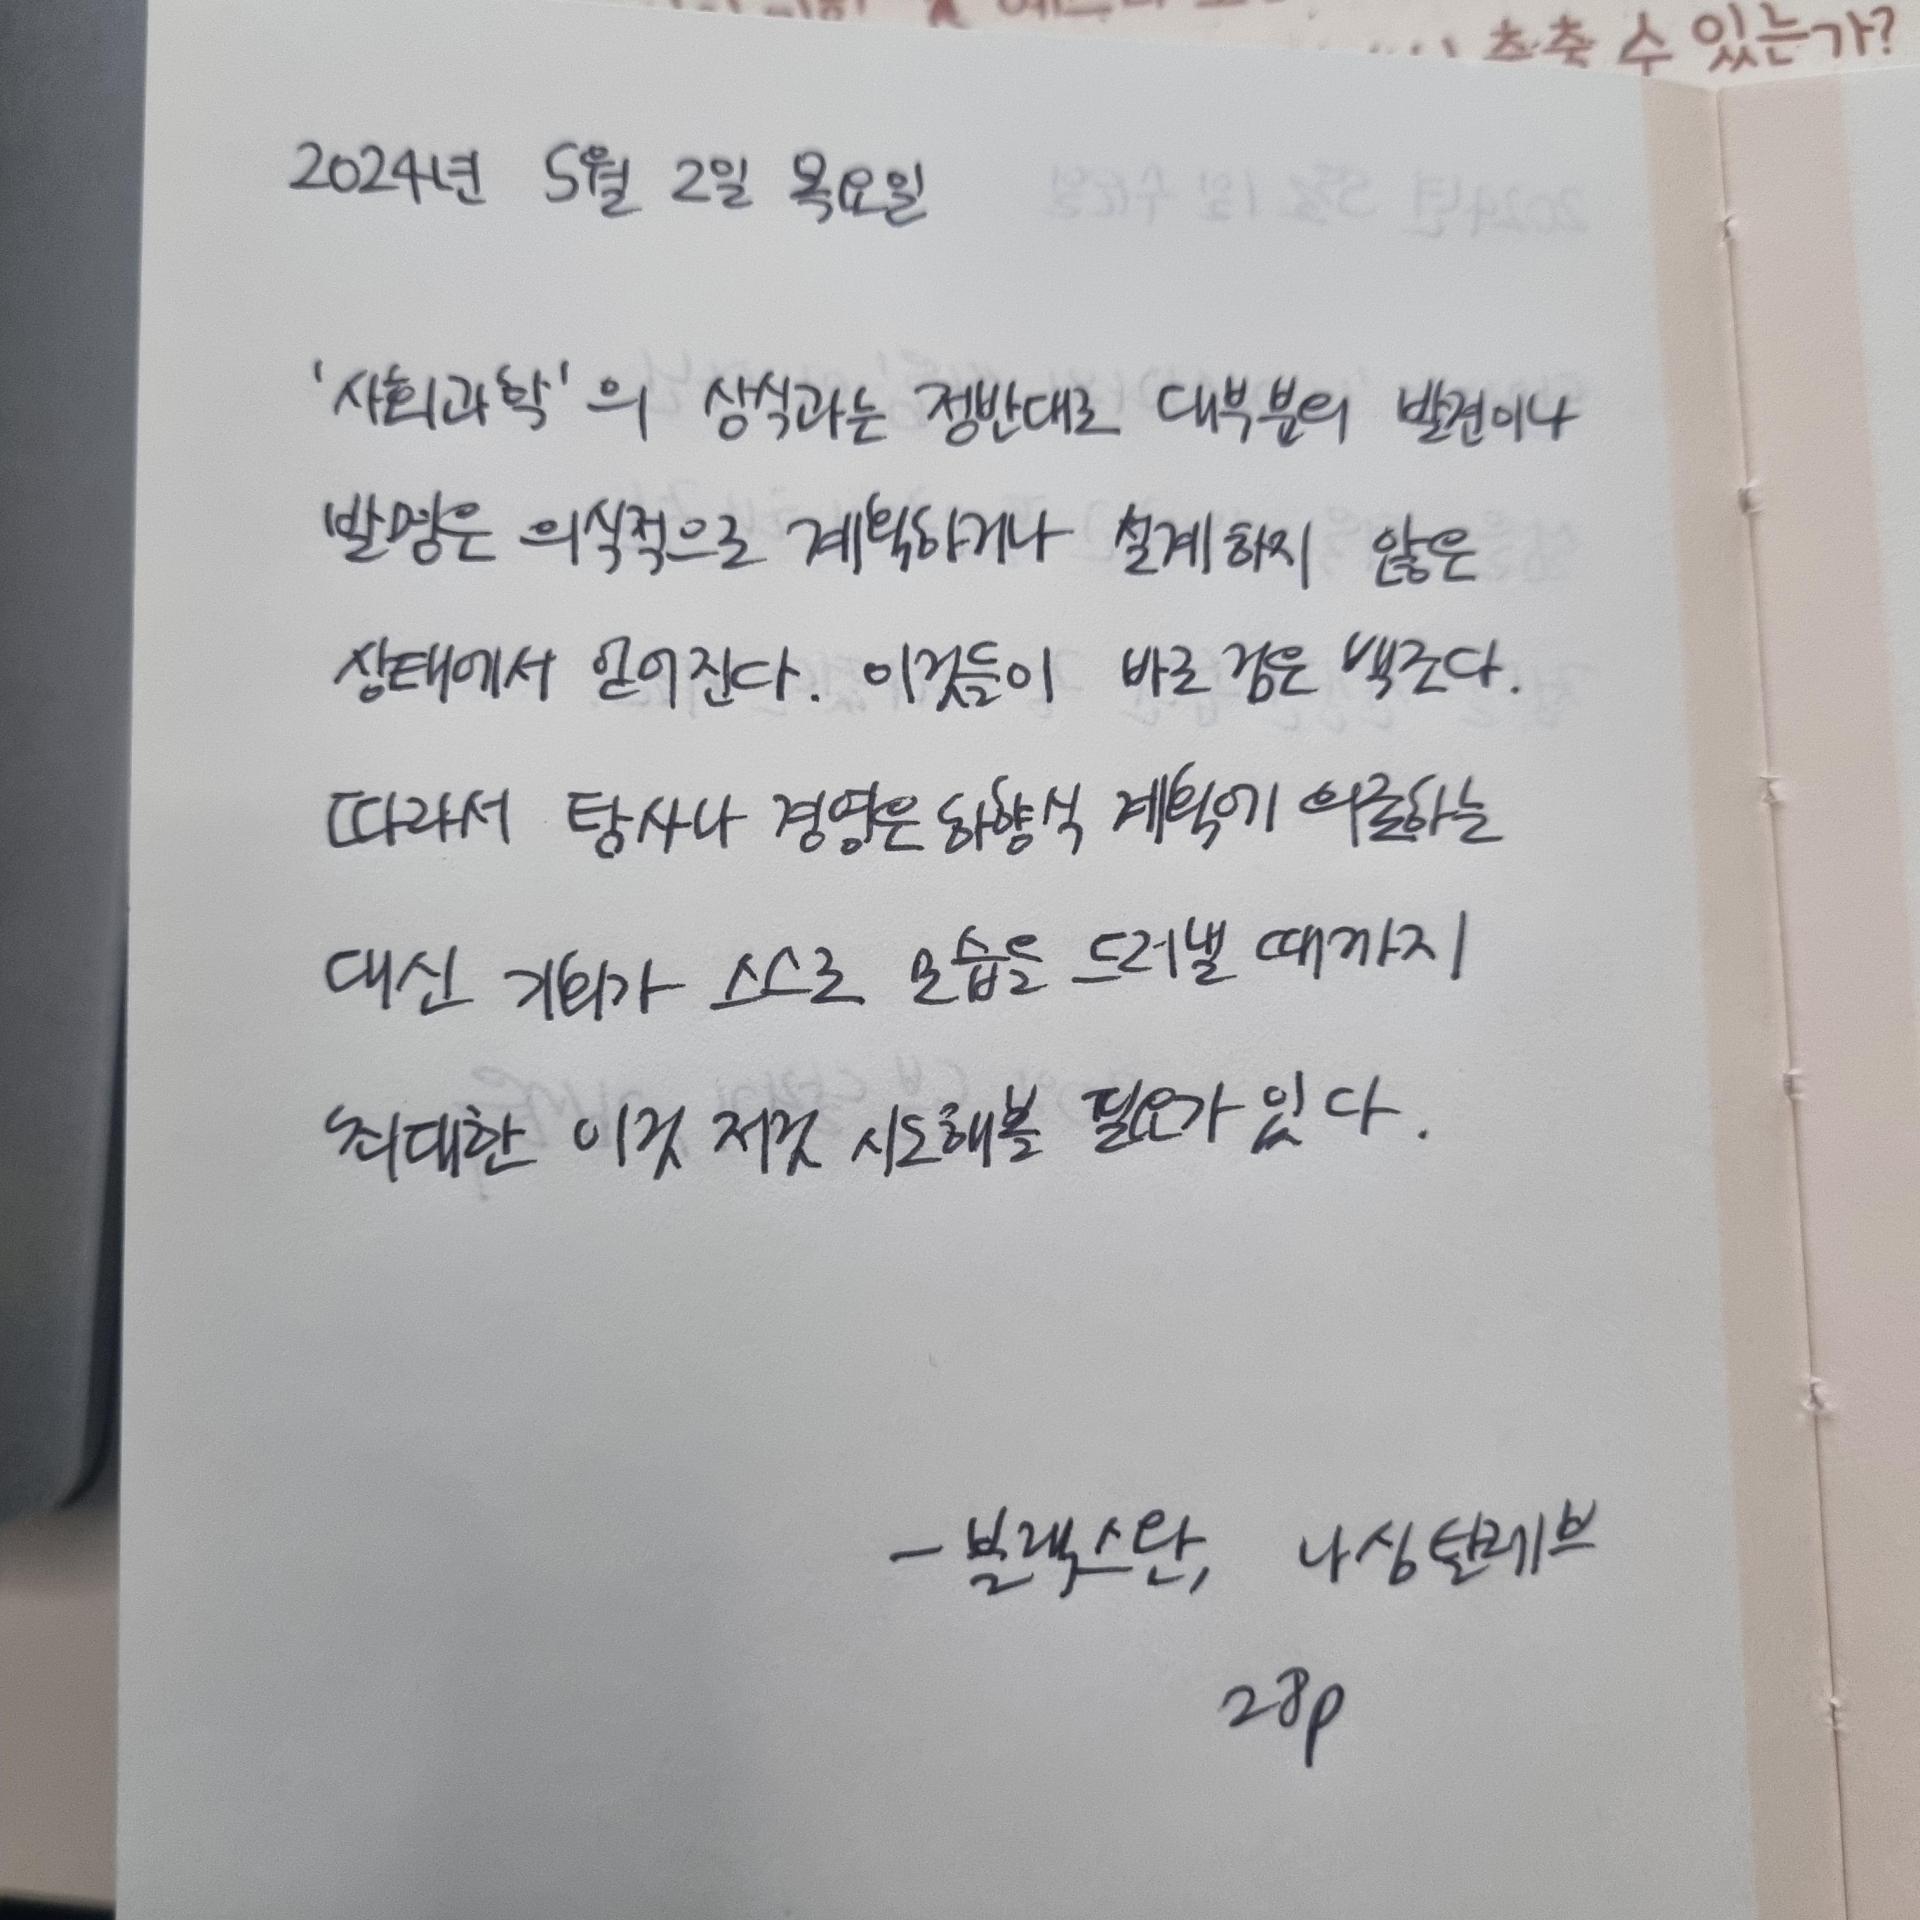 춤출 수 있는가?
2024년 5월 2일 목요일
'사회과학'의 상식과는 정반대로 대부분의 발견이나
발명은 의식적으로 계획하거나 설계하지 않은
상태에서 얻어진다. 이것들이 바로 검은 백조다.
따라서 탐사나 경영은 하향식 계획에 의존하는
대신 기회가 스스로 모습을 드러낼 때까지
최대한 이것 저것 시도해볼 필요가 있다.
- 블랙스완, 나심탈레브
28p